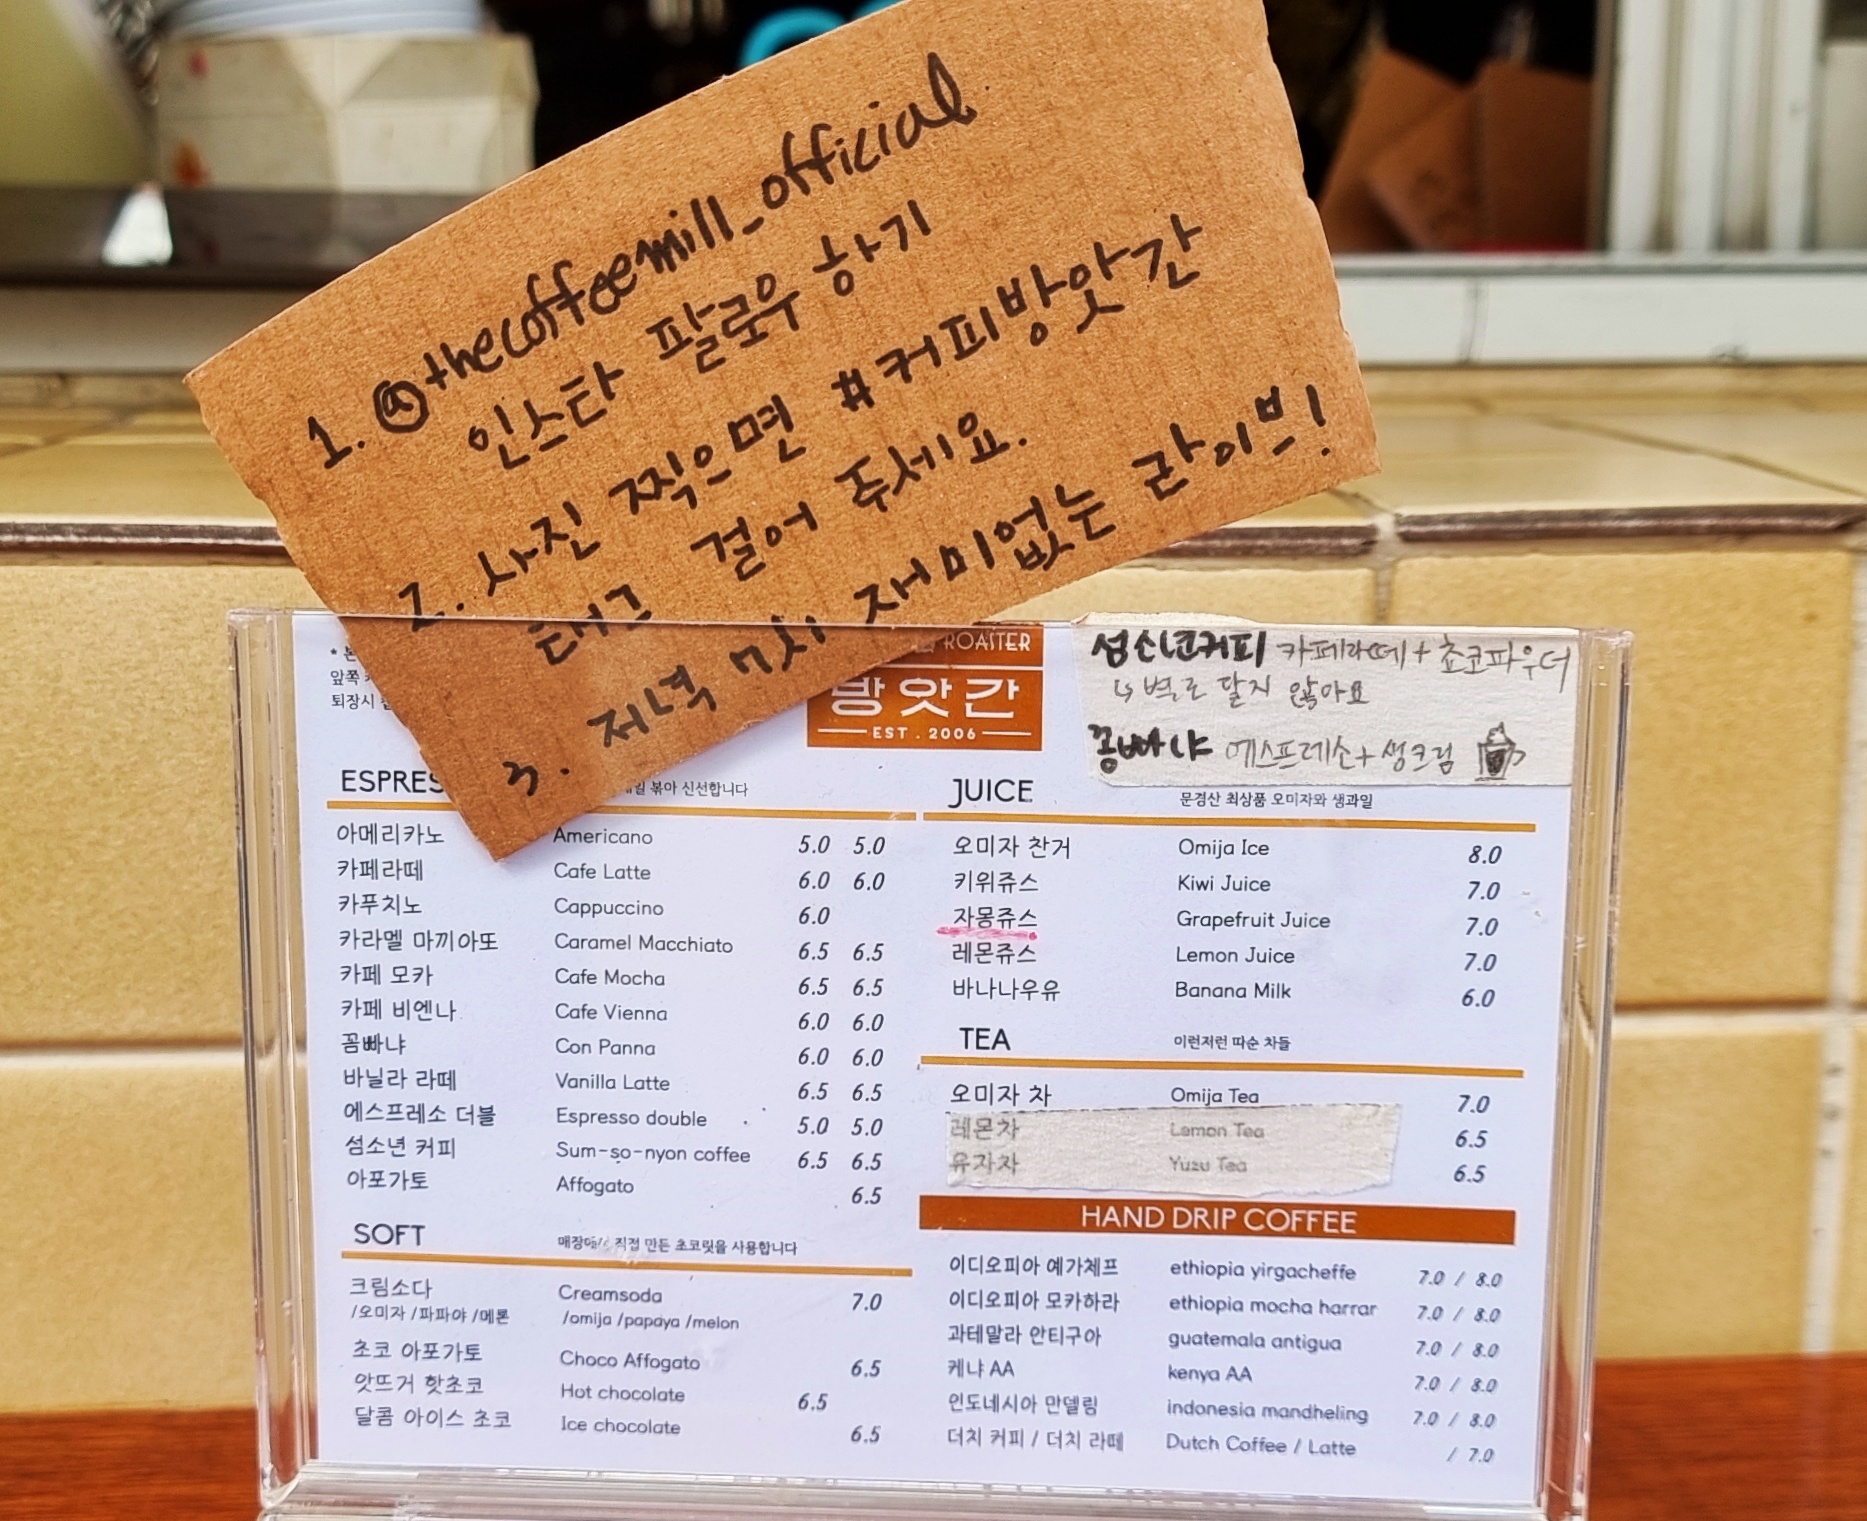 1. @thecoffeemill_official
인스타 팔로우 하기
2. 사진 찍으면 #커피방앗간
태그 걸어 주세요.
3. 저녁 7시 재미없는 라이브!
앞쪽
퇴장시
ROASTER
방앗간
EST. 2006
섬소년커피 카페라떼+쵸코파우더
↳ 별로 달지 않아요
꽁빠냐 에스프레소+생크림
ESPRES
볶아 신선합니다
아메리카노 Americano 5.0 5.0
카페라떼 Cafe Latte 6.0 6.0
카푸치노 Cappuccino 6.0
카라멜 마끼아또 Caramel Macchiato 6.5 6.5
카페 모카 Cafe Mocha 6.5 6.5
카페 비엔나 Cafe Vienna 6.0 6.0
꼼빠냐 Con Panna 6.0 6.0
바닐라 라떼 Vanilla Latte 6.5 6.5
에스프레소 더블 Espresso double 5.0 5.0
섬소년 커피 Sum-so-nyon coffee 6.5 6.5
아포가토 Affogato 6.5
SOFT 직접 만든 초코릿을 사용합니다
크림소다 Creamsoda 7.0
/오미자 /파파야 /메론 /omija /papaya /melon
초코 아포가토 Choco Affogato 6.5
앗뜨거 핫초코 Hot chocolate 6.5
달콤 아이스 초코 Ice chocolate 6.5
JUICE 문경산 최상품 오미자와 생과일
오미자 찬거 Omija Ice 8.0
키위쥬스 Kiwi Juice 7.0
자몽쥬스 Grapefruit Juice 7.0
레몬쥬스 Lemon Juice 7.0
바나나우유 Banana Milk 6.0
TEA 이런저런 따순 차들
오미자 차 Omija Tea 7.0
레몬차 Lemon Tea 6.5
유자차 Yuzu Tea 6.5
HAND DRIP COFFEE
이디오피아 예가체프 ethiopia yirgacheffe 7.0 / 8.0
이디오피아 모카하라 ethiopia mocha harrar 7.0 / 8.0
과테말라 안티구아 guatemala antigua 7.0 / 8.0
케냐 AA kenya AA 7.0 / 8.0
인도네시아 만델링 indonesia mandheling 7.0 / 8.0
더치 커피 / 더치 라떼 Dutch Coffee / Latte / 7.0